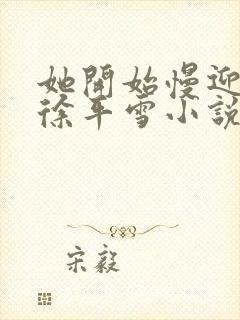 她開始慢迎
徐平雪小說
宋毅